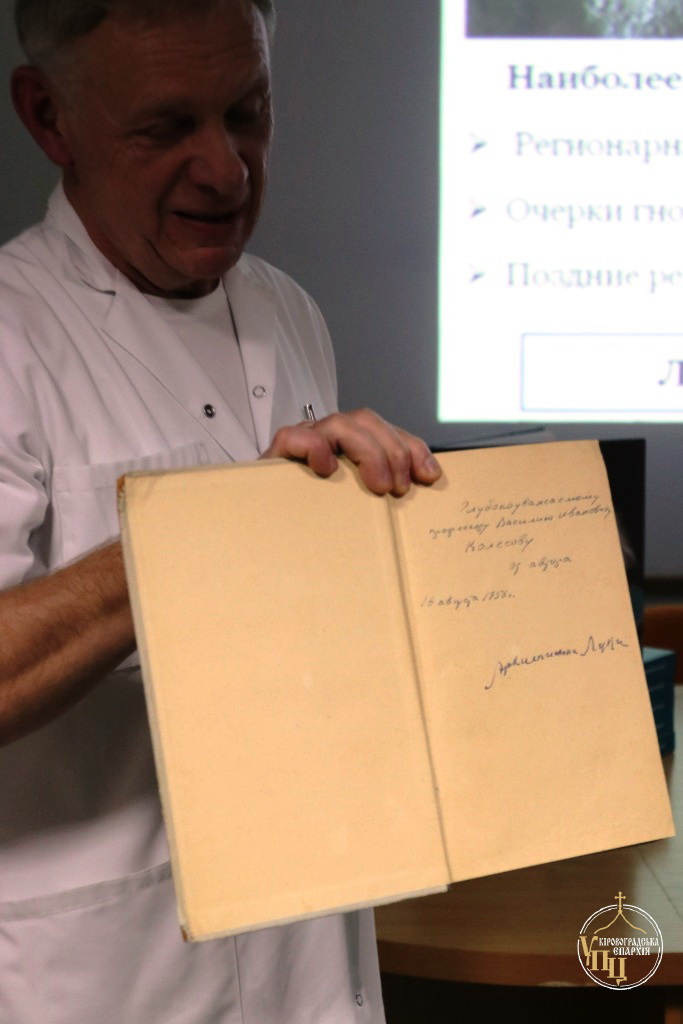 Наиболее
➢ Регионарн
➢ Очерки гно
➢ Поздние ре
Л
Глубокоуважаемому
профессору Василию Ивановичу
Колесову
от автора
16 августа 1956 г.
Архиепископ Лука
КІРОВОГРАДСЬКА
ЄПАРХІЯ
УПЦ